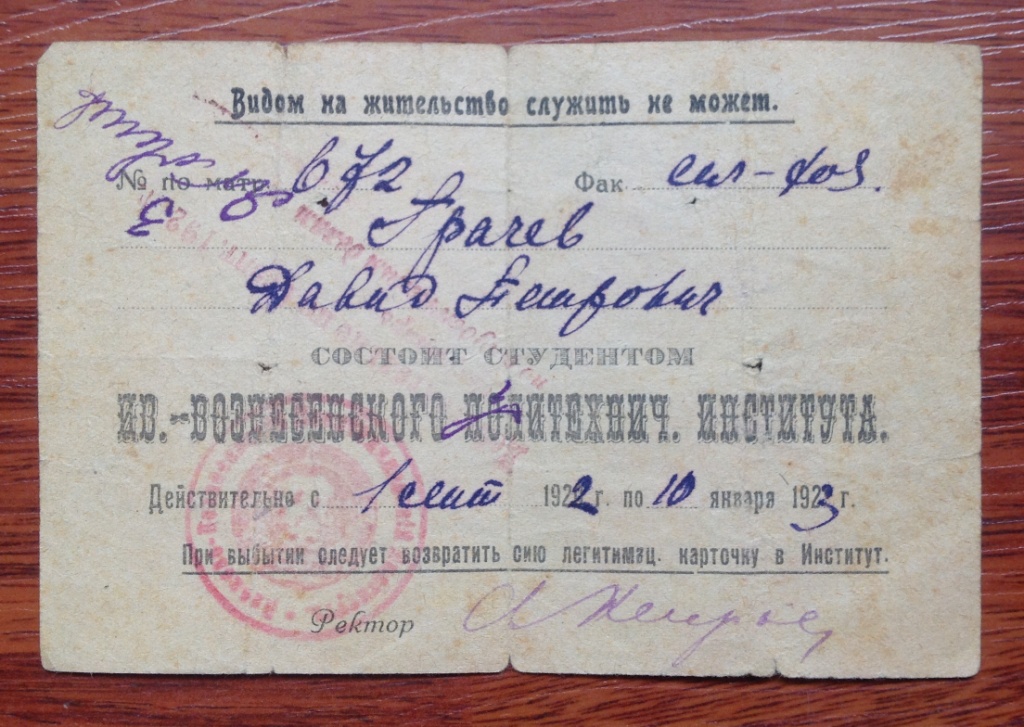 Видом на жительство служить не может.
№ по матр. 672 Фак сел-хоз.
Грачев
Давид Петрович
СОСТОИТ СТУДЕНТОМ
ИВ.-ВОЗНЕСЕНСКОГО ПОЛИТЕХНИЧ. ИНСТИТУТА.
Действительно с 1 сент 1922 г. по 10 января 1923 г.
При выбытии следует возвратить сию легитимац. карточку в Институт.
Ректор